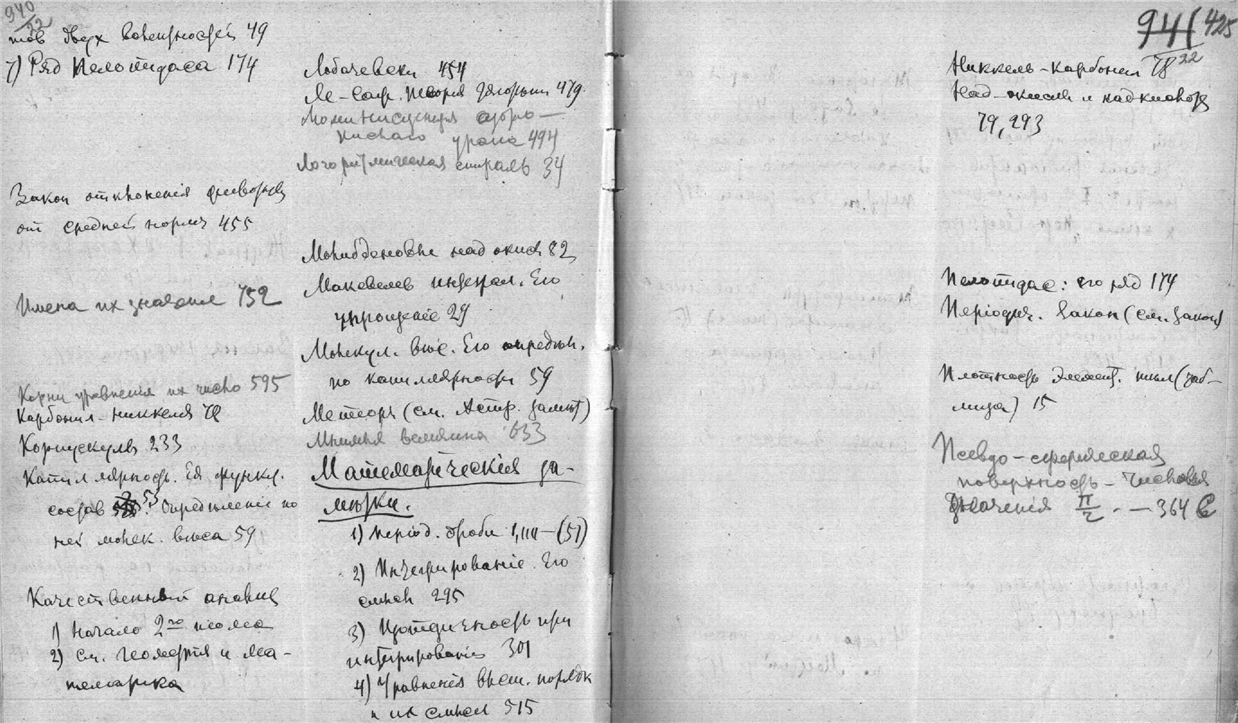 940/22
тов двух вокелностей 49
7) Ряд Пелопидаса 174
Закон отклоненія
от средней нормы 455
Имена их значение 752
Корни уравнения их число 595
Карбонил-никкеля 78
Корпускулы 233
Капиллярность. Ея функц.
состав 53. Определение по
ней молек. веса 59
Качественный анализ
1) Начало 2го
2) см. геометрия и ма-
тематика
Лобачевски 454
Ле-Саж. Теория 479
494
Логоритмическая спираль 34
Молибденовые над окиси 82
Максвелев интеграл. Его
упрощение 29
Молекул. вес. Его определ.
по капиллярности 59
Метеоры (см. Астр. замет)
Мнимыя величина 633
Математическия за-
метки.
1) Період. дроби 1,111—(51)
2) Интегрированіе. Его
смысл 295
3) при
интегрированіи 301
4) Уравненія высш. порядк
и их смысл 515
941/22 425
Никкель-карбонил 78
Над-окиси и надкислоты
79, 293
Пелопидас: его ряд 174
Періодич. Закон (см. закон)
Плотность элемент. (таб-
лица) 15
Псевдо-сферическая
поверхность - Числовыя
значения π/2 . — 364